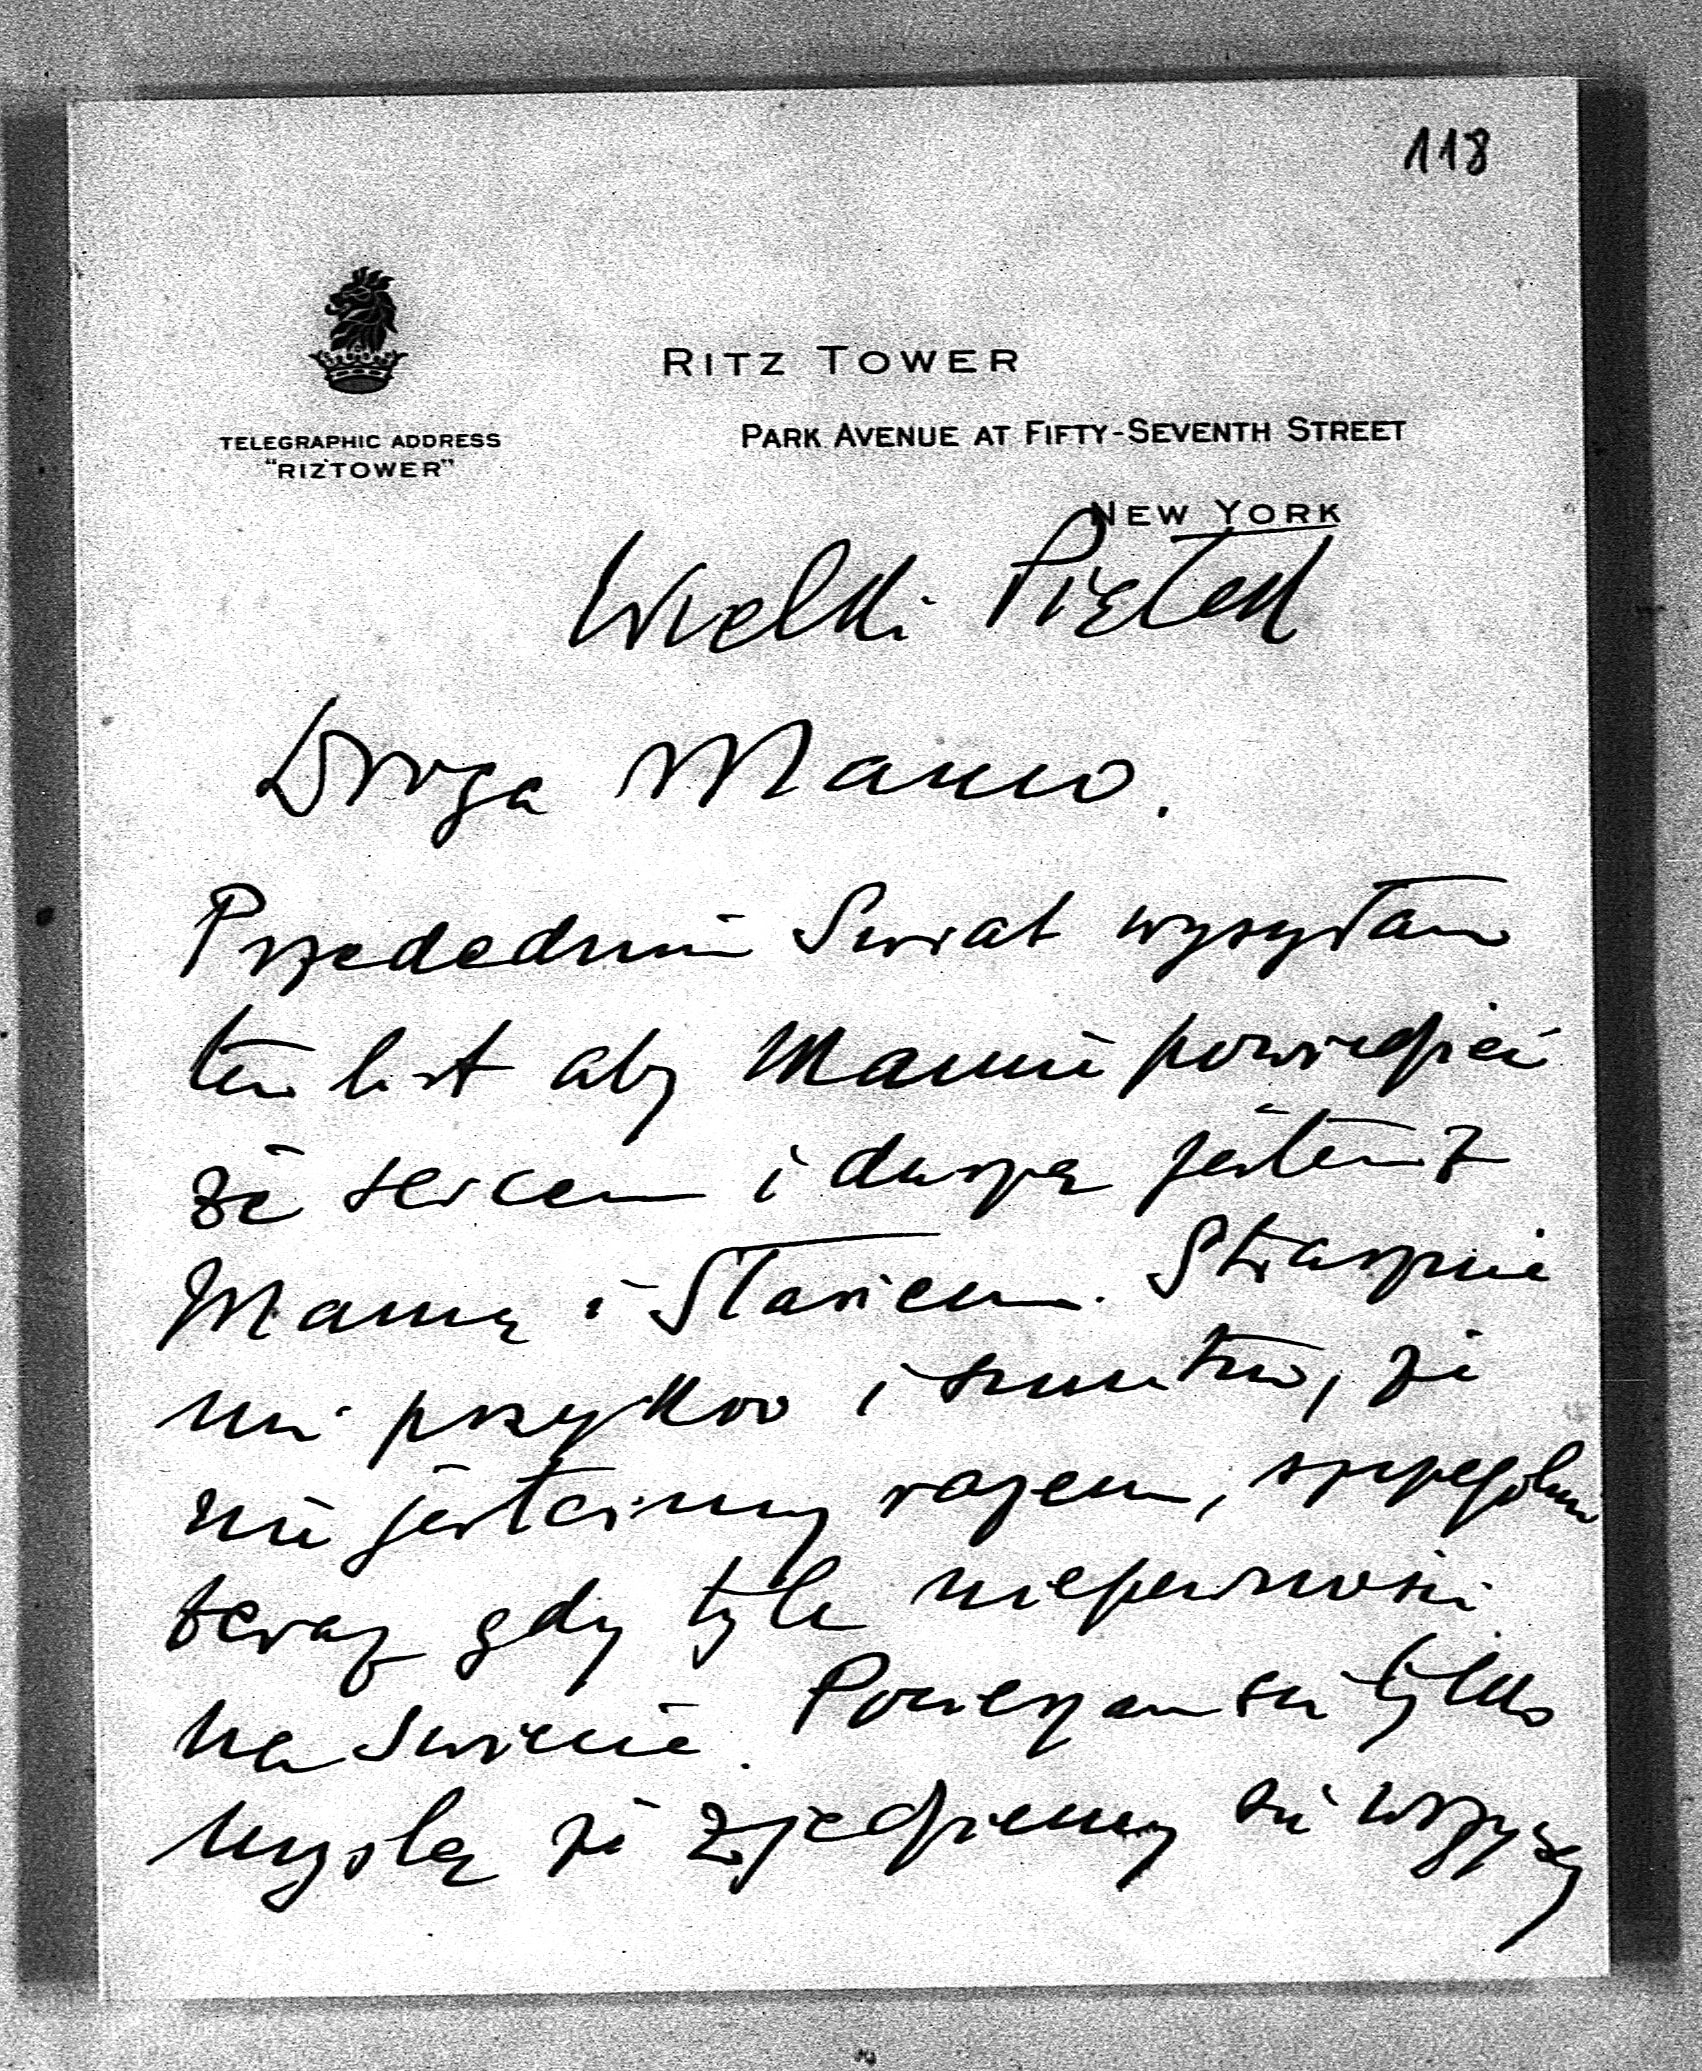 118
RITZ TOWER
PARK AVENUE AT FIFTY-SEVENTH STREET
TELEGRAPHIC ADDRESS
"RIZTOWER"
NEW YORK
Wielki Piątek
Droga Mamo.
Przededniu Swiat wysyłam
ten list aby Mamie powiedzieć
że sercem i duszą jestem z
Mamą i Stasiem. Strasznie
mi przykro i smutno, że
nie jesteśmy razem, szczególnie
teraz gdy tyle niepewności
na swiecie. Pocieszam się tylko
myslą że zjedziemy się wszyscy